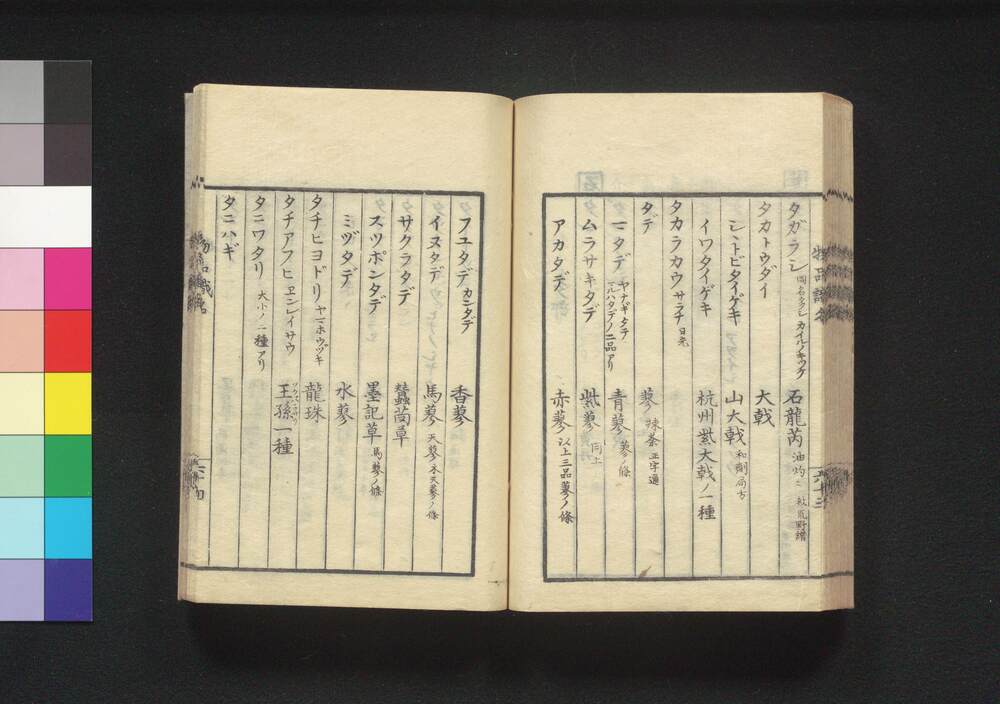 タガラシ 同名多クシ カイルノキツケ 石龍芮 油灼ニ 救荒野譜
タカトウダイ 大戟
シントビタイゲキ 山大戟 和劑局方
イワタイゲキ 杭州紫大戟ノ一種
タカラカウ サラチ 日光
タデ 蓼 辣茶 正字通
マタデ ヤナギタデ マルハタデノ二品アリ 青蓼 蓼ノ條
ムラサキタデ 紫蓼 同上
アカタデ 赤蓼 以上三品蓼ノ條
フユタデ カンタデ 香蓼
イヌタデ 馬蓼 天蓼 木天蓼ノ條
サクラタデ 蠶茧草
スツポンタデ 墨記草 馬蓼ノ條
ミヅタデ 水蓼
タチヒヨドリ ヤマホウヅキ 龍珠
タチアフヒ ヱンレイサウ 王孫一種
タニワタリ 大小ノ二種アリ
タニハギ
物品識名
六十三